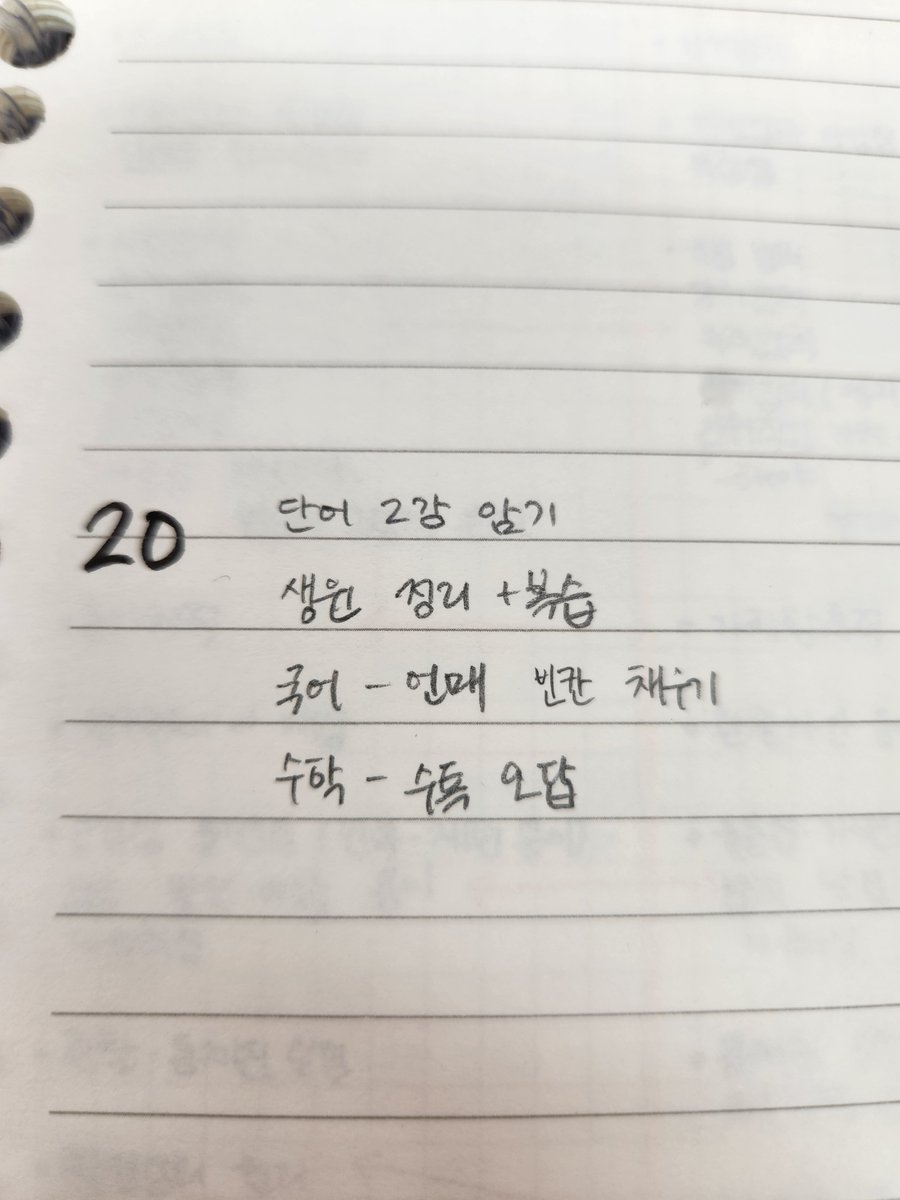 20 단어 2강 암기
생원 정리 + 복습
국어 - 언매 빈칸 채우기
수학 - 수특 오답